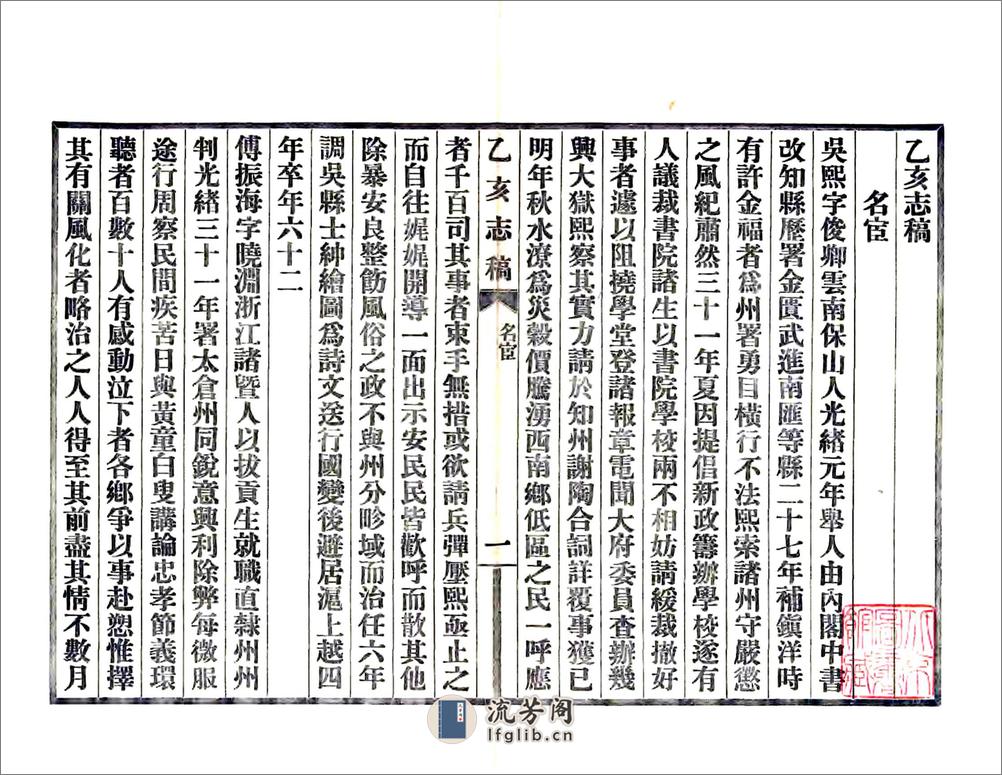 乙亥志稿
名宦
吳熙字俊卿雲南保山人光緒元年舉人由內閣中書
改知縣歷署金匱武進南匯等縣二十七年補鎭洋時
有許金福者爲州署勇目橫行不法熙索諸州守嚴懲
之風紀肅然三十一年夏因提倡新政籌辦學校遂有
人議裁書院諸生以書院學校兩不相妨請緩裁撤好
事者遽以阻撓學堂登諸報章電聞大府委員查辦幾
興大獄熙察其實力請於知州謝陶合詞詳覆事獲已
明年秋水潦爲災穀價騰湧西南鄉低區之民一呼應
乙亥志稿
名宦
一
者千百司其事者束手無措或欲請兵彈壓熙亟止之
而自往娓娓開導一面出示安民民皆歡呼而散其他
除暴安良整飭風俗之政不與州分畛域而治任六年
調吳縣士紳繪圖爲詩文送行國變後避居滬上越四
年卒年六十二
傅振海字曉淵浙江諸暨人以拔貢生就職直隸州州
判光緒三十一年署太倉州同銳意興利除弊每微服
途行周察民間疾苦日與黃童白叟講論忠孝節義環
聽者百數十人有感動泣下者各鄉爭以事赴愬惟擇
其有關風化者略治之人人得至其前盡其情不數月
流芳閣
lfglib.cn